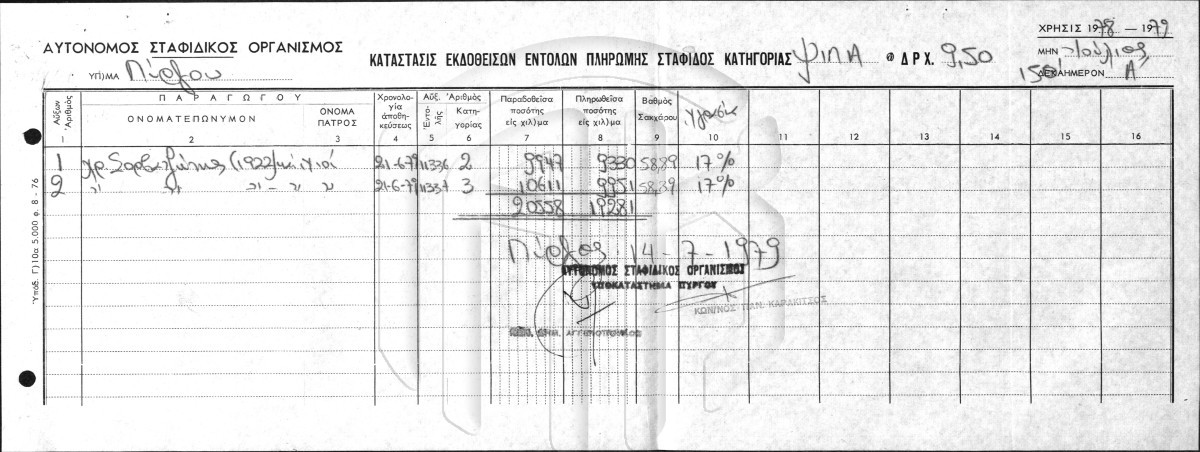 ΧΡΗΣΙΣ 1978 — 1979
ΑΥΤΟΝΟΜΟΣ ΣΤΑΦΙΔΙΚΟΣ ΟΡΓΑΝΙΣΜΟΣ
ΚΑΤΑΣΤΑΣΙΣ ΕΚΔΟΘΕΙΣΩΝ ΕΝΤΟΛΩΝ ΠΛΗΡΩΜΗΣ ΣΤΑΦΙΔΟΣ ΚΑΤΗΓΟΡΙΑΣ ΨΙΠΑ @ ΔΡΧ. 9,50
ΜΗΝ Ιούλιος
ΥΠ)ΜΑ Πύργου
ΔΕΚΑΗΜΕΡΟΝ Α΄
Αὔξων Ἀριθμός
ΠΑΡΑΓΩΓΟΥ
ΟΝΟΜΑΤΕΠΩΝΥΜΟΝ
ΟΝΟΜΑ ΠΑΤΡΟΣ
Χρονολογία ἀποθηκεύσεως
Αὔξ. Ἀριθμός
Ἐντολῆς
Κατηγορίας
Παραδοθεῖσα ποσότης εἰς χιλ)μα
Πληρωθεῖσα ποσότης εἰς χιλ)μα
Βαθμός Σακχάρου
Ὑγρασία
1 2 3 4 5 6 7 8 9 10 11 12 13 14 15 16
1 (1922) 21-6-79 11336 2 9947 9330 58,89 17%
2 21-6-79 11337 3 10611 9951 58,89 17%
20558 19281
Πύργος 14-7-1979
ΑΥΤΟΝΟΜΟΣ ΣΤΑΦΙΔΙΚΟΣ ΟΡΓΑΝΙΣΜΟΣ
ΥΠΟΚΑΤΑΣΤΗΜΑ ΠΥΡΓΟΥ
ΚΩΝ/ΝΟΣ ΠΑΝ. ΚΑΡΑΚΙΤΣΟΣ
Ὑπόδ. Γ)10α 5.000 φ. 8 - 76